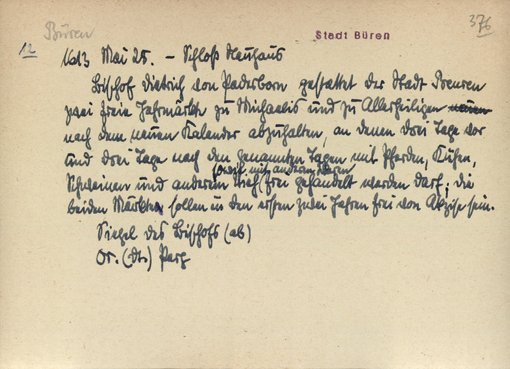 Büren
Stadt Büren
376
12
1613 Mai 25. - Schloß Neuhaus
Bischof Dietrich von Paderborn gestattet der Stadt Beuren
zwei freie Jahrmärkte zu Michaelis und zu Allerheiligen neuen
nach dem neuen Kalender abzuhalten, an denen drei Tage vor
und drei Tage nach den genannten Tagen mit Pferden, Kühen,
sowie mit anderen Waren
Schweinen und anderem Vieh frei gehandelt werden darf; die
beiden Märkte sollen in den ersten zwei Jahren frei von Akzise sein.
Siegel des Bischofs (ab)
Or. (dt.) Perg